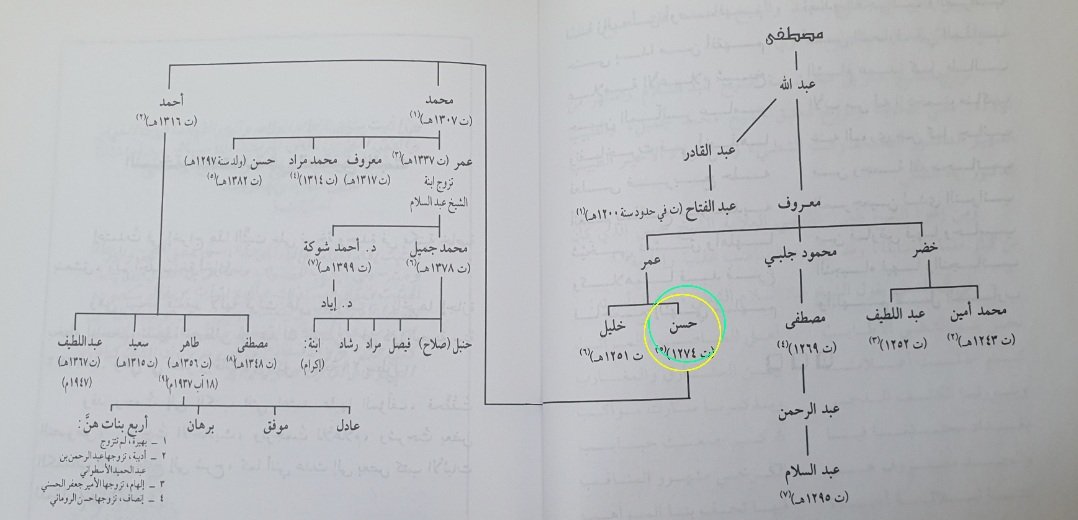 مصطفى
عبد الله
عبد القادر
عبد الفتاح (ت في حدود سنة ١٢٠٠هـ)(١)
معروف
خضر
محمود جلبي
عمر
محمد أمين
(ت ١٢٤٣هـ)(٢)
عبد اللطيف
(ت ١٢٥٢)(٣)
مصطفى
(ت ١٢٦٩)(٤)
حسن
(ت ١٢٧٤)(٥)
خليل
ت ١٢٥١هـ)(٦)
عبد الرحمن
عبد السلام
(ت ١٢٩٥هـ)(٧)
محمد
(ت ١٣٠٧هـ)(١)
أحمد
(ت ١٣١٦هـ)(٢)
عمر (ت ١٣٣٧هـ)(٣)
تزوج ابنة
الشيخ عبد السلام
معروف
(ت ١٣١٧هـ)
محمد مراد
(ت ١٣١٤)(٤)
حسن (ولد سنة ١٢٩٧هـ)
(ت ١٣٨٢هـ)(٥)
محمد جميل
(ت ١٣٧٨هـ)(٦)
د. أحمد شوكة
(ت ١٣٩٩هـ)(٧)
د. إياد
حنبل (صلاح)
فيصل
مراد
رشاد
ابنة:
(إكرام)
مصطفى
(ت ١٣٤٨هـ)(٨)
طاهر
(ت ١٣٥٦هـ)
١٨ آب ١٩٣٧م)(٩)
سعيد
(ت ١٣١٥هـ)
عبد اللطيف
(ت ١٣٦٧هـ)
(١٩٤٧م)
عادل
موفق
برهان
أربع بنات هنَّ:
١ ـ بهيرة، لم تتزوج
٢ ـ أديبة، تزوجها عبد الرحمن بن
عبد الحميد الأسطواني
٣ ـ إلهام، تزوجها الأمير جعفر الحسني
٤ ـ إنصاف، تزوجها حسن الروماني